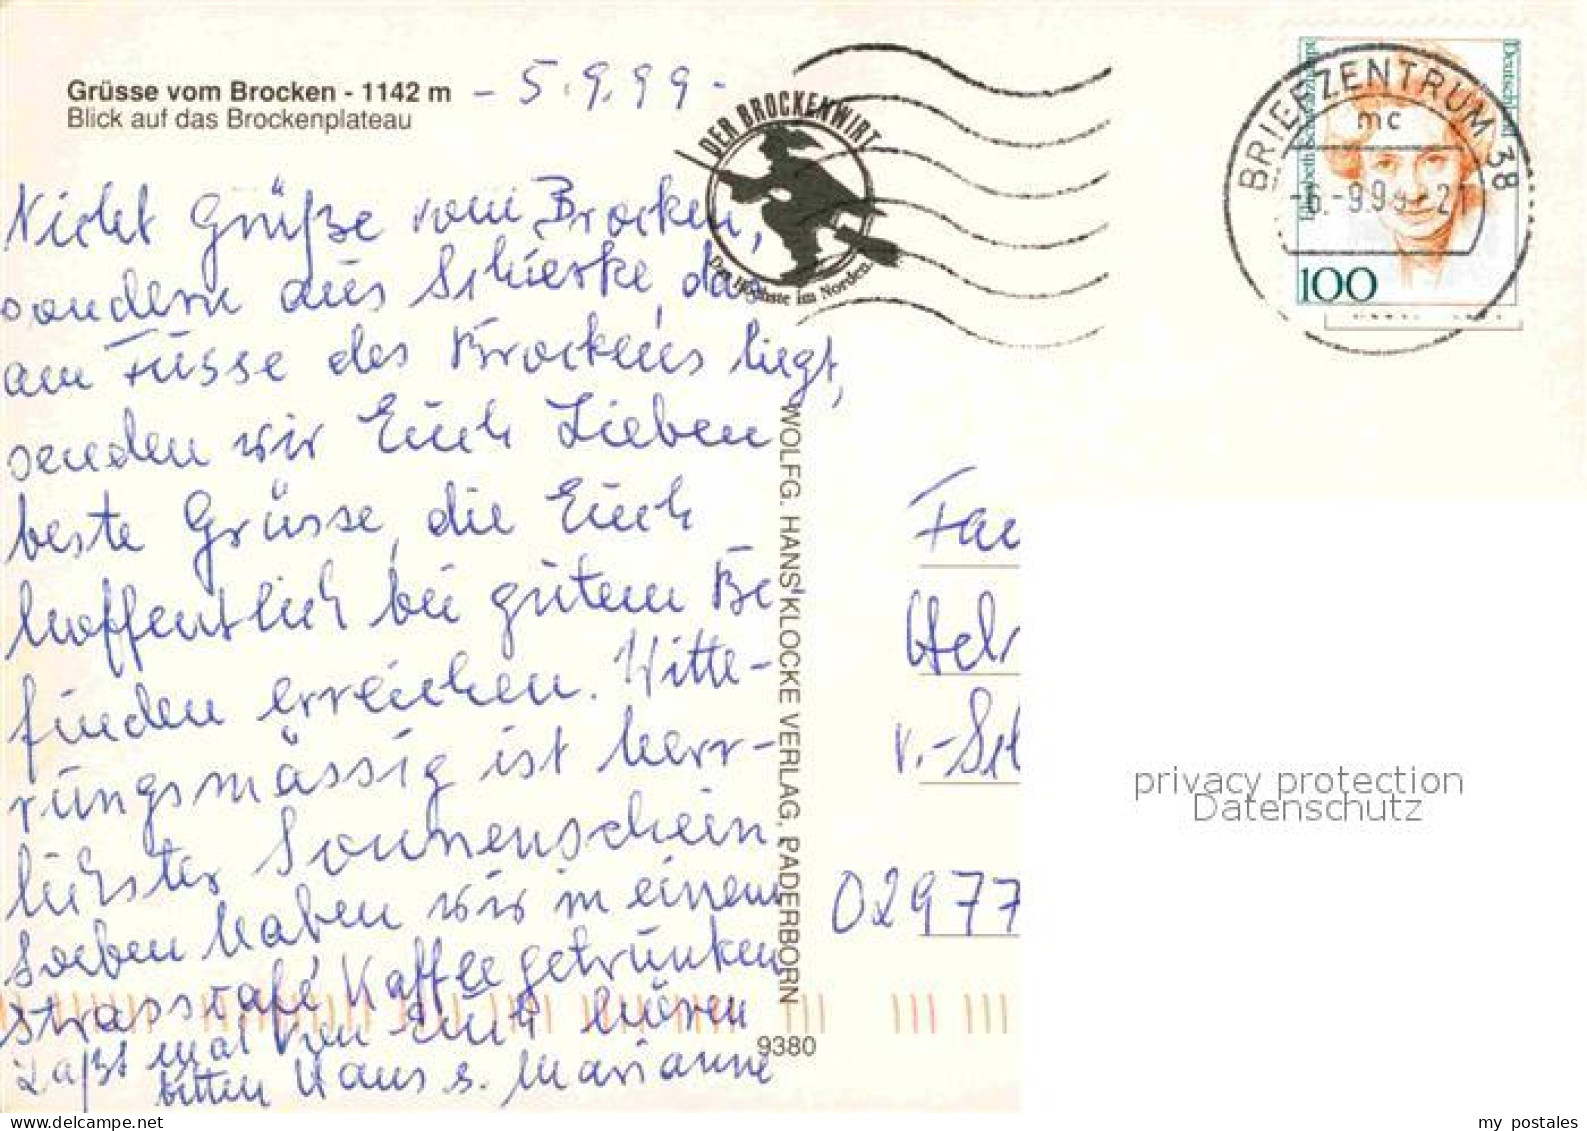 Grüsse vom Brocken - 1142 m
Blick auf das Brockenplateau
- 5.9.99 -
Nicht Grüße vom Brocken,
sondern aus Schierke, das
am Füsse des Brockens liegt,
senden wir Euch Lieben
beste Grüsse, die Euch
hoffentlich bei gutem Be
finden erreichen. Witte-
rungsmässig ist herr-
lichster Sonnenschein
Soeben haben wir in einem
Strasscafé Kaffee getrunken
Laßt mal von Euch hören
bitten Hans u. Marianne
DER BROCKENWIRT
Der Höchste im Norden
BRIEFZENTRUM 38
mc
-6.-9.99
Deutschland
100
WOLFG. HANS KLOCKE VERLAG, PADERBORN
9380
Fa
Hel
v.-Sch
02977
privacy protection
Datenschutz
my postales